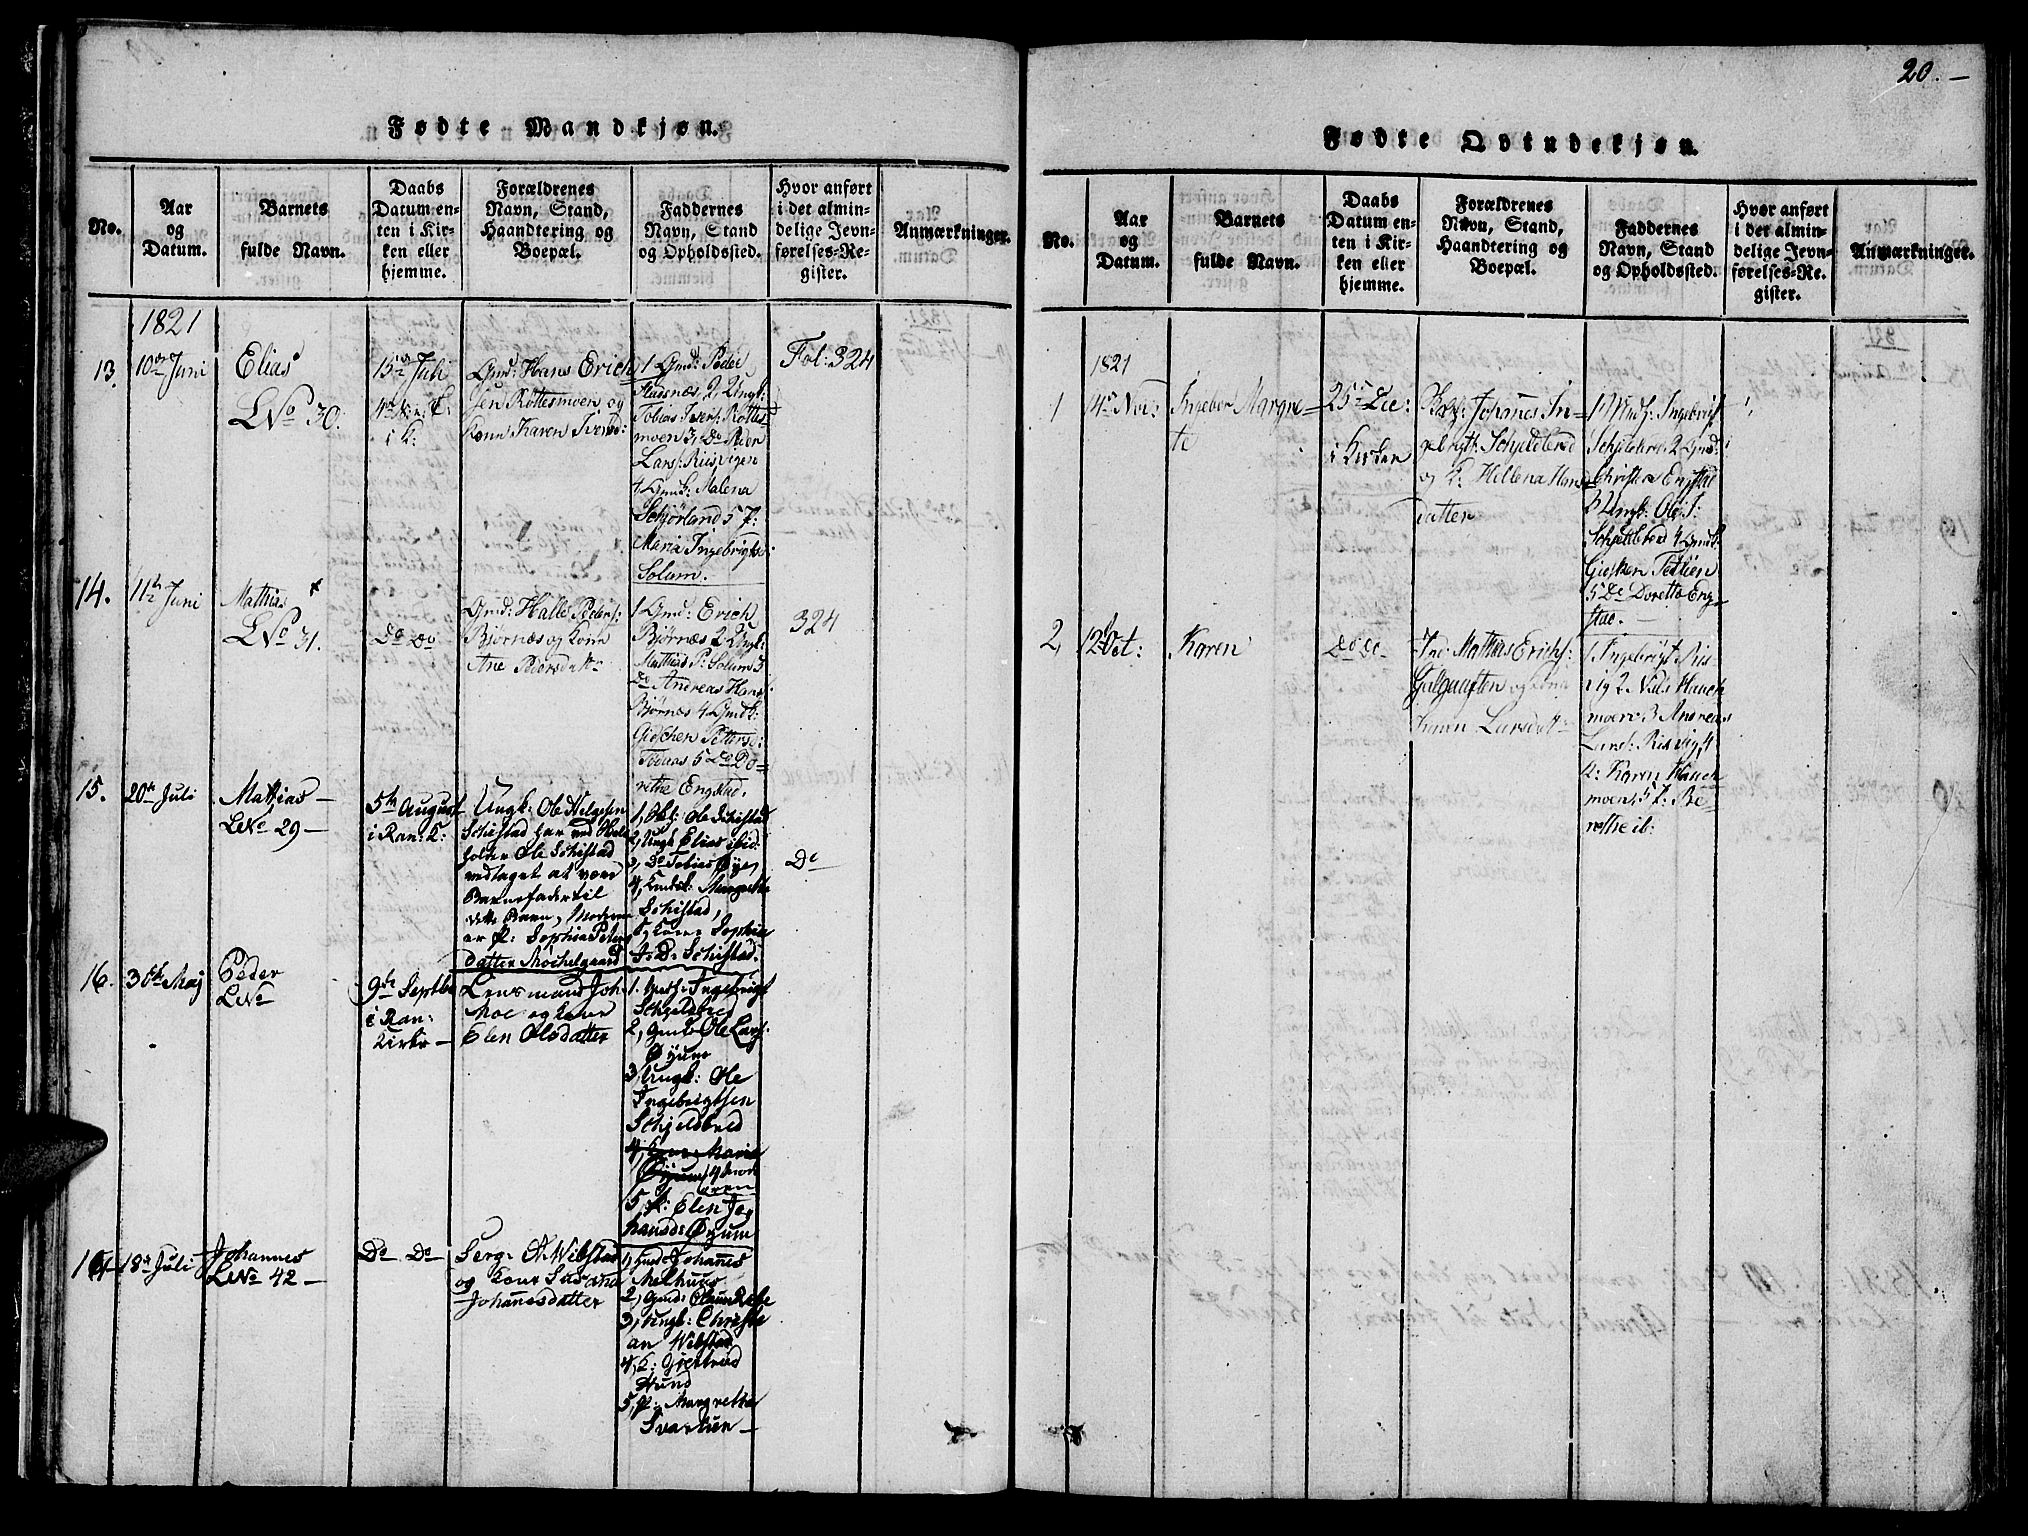 20. —
Fødte Mandkjøn.
No.
Aar
og
Datum.
Barnets
fulde Navn.
Daabs
Datum en-
ten i Kir-
ken eller
hjemme.
Forældrenes
Navn, Stand,
Haandtering og
Boepæl.
Faddernes
Navn, Stand
og Opholdssted.
Hvor anført
i det almin-
delige Jevn-
førelses-Re-
gister.
Anmærkninger.
1821
13.
10de Juni
Elias
LNo 30.
15de Juli
i K:
Gmd: Hans Erich
sen Røttesmoen og
Kone Karen Iversd:
1 Gmd: Peder
Hasnæs 2 Ungk:
Tobias Ivers: Røttes
moen 3, Do Peder
Lars: Riisvigen
4 Gmdk: Malena
Schjørland 5 P:
Maria Ingebrigtsd:
Solum.
Fol: 324
14.
11te Juni
Mathias
LNo 31.
Do Do
Gmd: Halle Peders:
Bjørnæs og Kone
Ane Pedersdatter
1 Gmd: Erich
Bjørnæs 2 Ungk:
Mathias P: Solum 3
Do Andreas Hans:
Bjørnæs 4 Gmdk:
Gidschen Petters:
5 Do Do-
rethe Engstad.
324
15.
20de Juli
Mathias —
LNo 29 —
5te August
i Ran: K:
Ungk: Ole Helgesen
Schistad har ved
Ole Schistad
vedtaget at være
Barnefader til
dette Barn, Moderen
er P: Sophia Peters
datter Mochelgaard
1, Ole Schistad
2, Ungk Elias ibid:
3, Do Tobias Øye,
4, Margrethe
Schistad,
5, Kone Sophia
J: D: Schistad.
Do
16.
30te Maj
Peder
LNo
9de Septbr
i Ran:
Kirke —
Lensmand Joh:
Moe og Kone
Elen Olsdatter
1. Ingebrigt
Schjelsbred
2, Ole Lars:
Øyum
3, Ungk: Ole
Ingebrigtsen
Schjelsbred
4, Kone Maria
Øyum
5, P: Elen Jo
hansd: Øyum
16
18de Juli
Johannes
LNo 42 —
Do Do
Serg: O. Wibstad
og Kone Susanna
Johannesdatter
1, Johannes
Melhuus
2, Gmd:
3, Ungk: Christi
an Wibstad
4, K: Gjertrud
Hund
5, P: Margrethe
Svartien —
Fødte Qvindekjøn.
No.
Aar
og
Datum.
Barnets
fulde Navn.
Daabs
Datum en-
ten i Kir-
ken eller
hjemme.
Forældrenes
Navn, Stand,
Haandtering og
Boepæl.
Faddernes
Navn, Stand
og Opholdssted.
Hvor anført
i det almin-
delige Jevn-
førelses-Re-
gister.
Anmærkninger.
1821
1
14de Nov:
Ingebor Margre
te
25de Dec:
i Kirken
Johannes In-
gebrigt: Schjeldbred
og K: Hellena Hans
datter
1 Ingebrigt
Schjelsbred 2 Gmd:
Christen Engstad
3 Ungk: Ole I:
Schjeldbred 4 Gmdk:
5 Do Doretta Eng-
stad. —
2,
12 Oct:
Karen
Do Do
Ind: Mathias Erichs:
og Kone
Karen Larsdatt
1, Ingebrigt Ris
vig 2 Niels Hauch
moen 3 Andreas
Lars: Risvig, 4
K: Karen Hauch
moen, 5 P: Be
rethe ib: